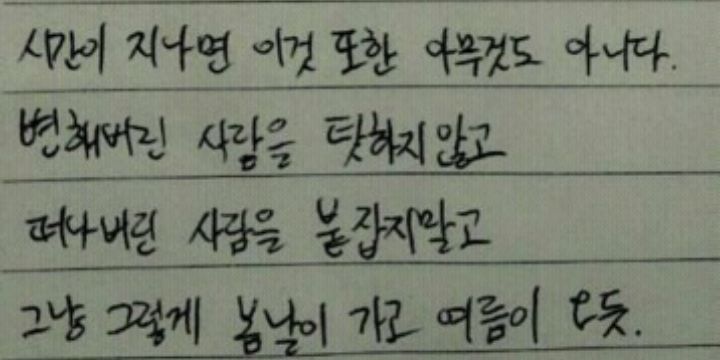 시간이 지나면 이것 또한 아무것도 아니다.
변해버린 사람을 탓하지 않고
떠나버린 사람을 붙잡지말고
그냥 그렇게 봄날이 가고 여름이 오듯.